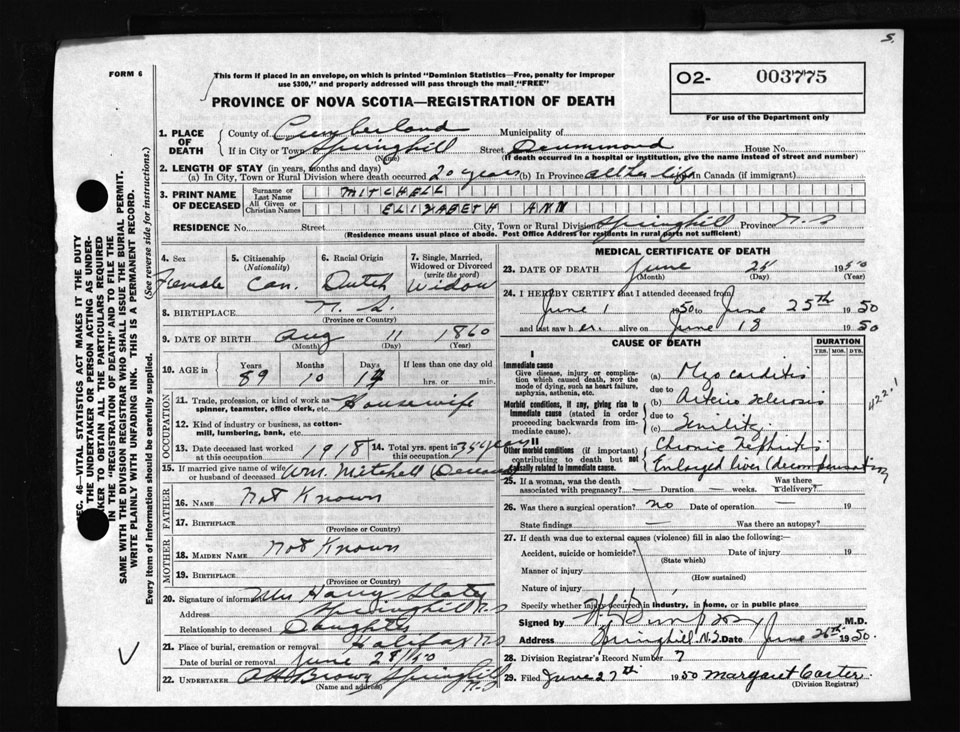 S.
FORM 6
This form if placed in an envelope, on which is printed "Dominion Statistics—Free, penalty for improper
use $300," and properly addressed will pass through the mail "FREE"
O2- 003775
For use of the Department only
PROVINCE OF NOVA SCOTIA—REGISTRATION OF DEATH
1. PLACE OF DEATH
County of Cumberland Municipality of
If in City or Town Springhill Street Drummond House No.
(Name) (If death occurred in a hospital or institution, give the name instead of street and number)
2. LENGTH OF STAY (in years, months and days)
(a) In City, Town or Rural Division where death occurred 20 years (b) In Province all her life in Canada (if immigrant)
3. PRINT NAME OF DECEASED
Surname or Last Name MITCHELL
All Given or Christian Names ELIZABETH ANN
RESIDENCE No. Street City, Town or Rural Division Springhill Province N.S
(Residence means usual place of abode. Post Office Address for residents in rural parts not sufficient)
4. Sex Female
5. Citizenship (Nationality) Can.
6. Racial Origin Dutch
7. Single, Married, Widowed or Divorced (write the word) Widow
8. BIRTHPLACE N.S.
(Province or Country)
9. DATE OF BIRTH Aug 11 1860
(Month) (Day) (Year)
10. AGE in Years Months Days If less than one day old
89 10 14 hrs. or min.
OCCUPATION
11. Trade, profession, or kind of work as spinner, teamster, office clerk, etc. Housewife
12. Kind of industry or business, as cotton-mill, lumbering, bank, etc.
13. Date deceased last worked at this occupation 1918 14. Total yrs. spent in this occupation 35 years
15. If married give name of wife or husband of deceased Wm. Mitchell
FATHER
16. Name Not Known
17. Birthplace
(Province or Country)
MOTHER
18. Maiden Name Not Known
19. Birthplace
(Province or Country)
20. Signature of informant Mrs Harry
Address Springhill N.S
Relationship to deceased Daughter
21. Place of burial, cremation or removal Halifax N.S
Date of burial or removal June 28/50
22. UNDERTAKER Brown Springhill N.S
(Name and address)
MEDICAL CERTIFICATE OF DEATH
23. DATE OF DEATH June 25 1950
(Month) (Day) (Year)
24. I HEREBY CERTIFY that I attended deceased from
June 1 1950 to June 25th 1950
and last saw her alive on June 18 1950
CAUSE OF DEATH
DURATION
YRS. MOS. DYS.
I
Immediate cause
Give disease, injury or complication which caused death, not the mode of dying, such as heart failure, asphyxia, asthenia, etc.
(a) Myocarditis
due to
Morbid conditions, if any, giving rise to immediate cause (stated in order proceeding backwards from immediate cause).
(b) Arterio sclerosis
due to
(c) Senility
422.1
II
Other morbid conditions (if important) contributing to death but not causally related to immediate cause.
Chronic Nephritis
Enlarged liver (decompensation)
25. If a woman, was the death associated with pregnancy? — Duration — weeks. Was there a delivery?
26. Was there a surgical operation? no Date of operation — 19
State findings — Was there an autopsy?
27. If death was due to external causes (violence) fill in also the following:—
Accident, suicide or homicide? Date of injury 19
(State which)
Manner of injury
(How sustained)
Nature of injury
Specify whether injury occurred in industry, in home, or in public place
Signed by M.D.
Address Springhill N.S. Date June 26th 1950.
28. Division Registrar's Record Number 7
29. Filed June 27th 1950 Margaret Carter
(Division Registrar)
SEC. 46—VITAL STATISTICS ACT MAKES IT THE DUTY
OF THE UNDERTAKER OR PERSON ACTING AS UNDER-
TAKER TO OBTAIN ALL THE PARTICULARS REQUIRED
IN THE "REGISTRATION OF DEATH" AND TO FILE THE
SAME WITH THE DIVISION REGISTRAR WHO SHALL ISSUE THE BURIAL PERMIT.
WRITE PLAINLY WITH UNFADING INK. THIS IS A PERMANENT RECORD.
Every item of information should be carefully supplied. (See reverse side for instructions.)